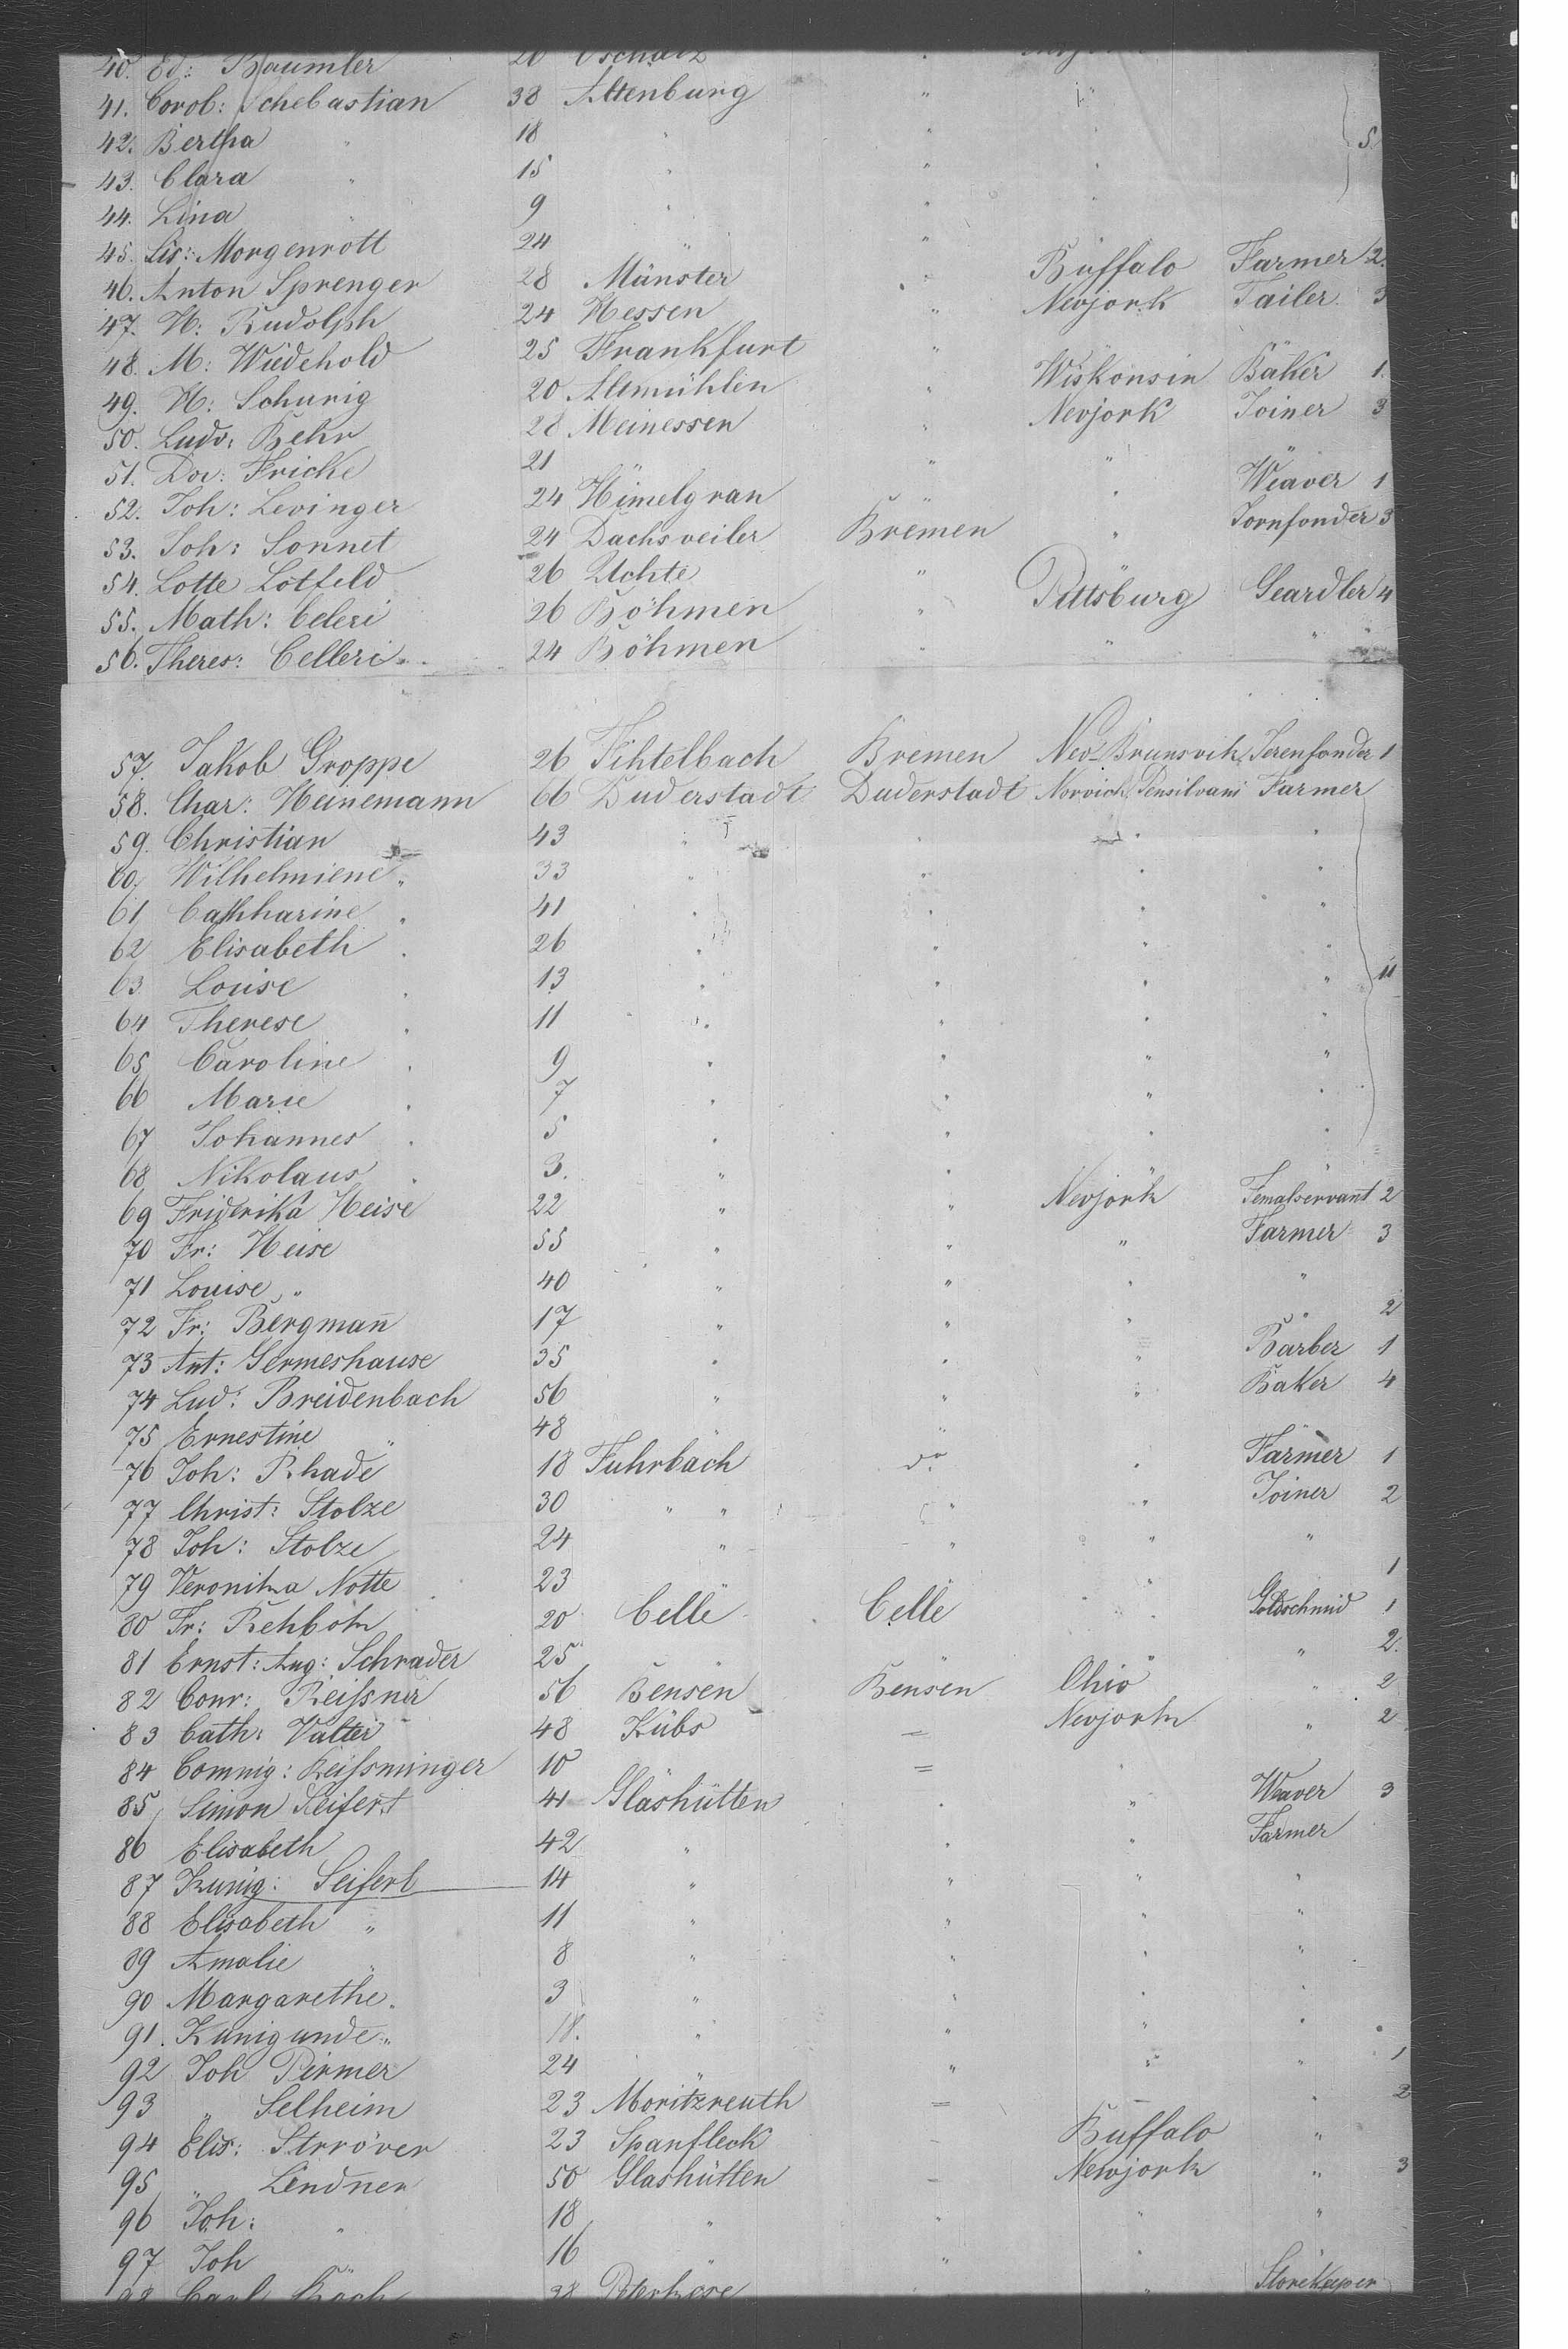 40. Ed: Baumler 20 Oschatz "
41. Corob: Schebastian 38 Altenburg " "
42. Bertha " 18 " " " 5
43. Clara " 15 " " "
44. Lina " 9 " " "
45. Lis: Morgenrott 24 " "
46. Anton Sprenger 28 Münster " Buffalo Farmer 2.
47. H: Rudolph 24 Hessen " Nevjork Tailer 3
48. M: Wiedehold 25 Frankfurt "
49. H: Schurig 20 Altmühlen " Wiskonsin Bäker 1.
50. Ludv: Behr 28 Meinessen " Nevjork Joiner 3
51. Dor: Fricke 21 " " "
52. Joh: Levinger 24 Himelgran " " Weaver 1
53. Joh: Sonnet 24 Dachsveiler Bremen " Jornfonder 3
54. Lotte Lotfeld 26 Uchte "
55. Math: Celeri 26 Böhmen " Pittsburg Geardler 4
56. Theres: Celleri 24 Böhmen " " "
57. Jakob Groppe 26 Fihtelbach Bremen Nev Brunsvik Jerenfonder 1
58. Char: Heinemann 66 Duderstadt Duderstadt Norvich Pensilvani Farmer
59. Christian 43 " " " "
60. Wilhelmiene " 33 " " " "
61 Cathharine " 41 " " " "
62 Elisabeth " 26 " " " "
63 Louise " 13 " " " " 11
64 Therese " 11 " " " "
65 Caroline " 9 " " " "
66 Marie " 7 " " " "
67 Johannes " 5 " " " "
68 Nikolaus " 3. " " " "
69 Friderika Heise 22 " " Nevjork Femalservant 2
70 Fr: Heise 55 " " " Farmer 3
71 Louise " 40 " " " "
72 Fr: Bergmañ 17 " " " " 2
73 Ant: Germeshause 35 " " " Barber 1
74 Lud: Breidenbach 56 " " " Baker 4
75 Ernestine " 48 "
76 Joh: Rhade 18 Fuhrbach do " Farmer 1
77 Christ: Stolze 30 " " " " Joiner 2
78 Joh: Stolze 24 " " " "
79 Veronika Notte 23 " 1
80 Fr: Rehbom 20 Celle Celle " Goldschmid 1
81 Ernst: Aug: Schrader 25 " " " " 2.
82 Conr: Reissner 56 Bensen Bensen Ohio " 2
83 Cath: Valter 48 Kübs = Nevjork " 2
84 Connig: Reissminger 10 = "
85 Simon Seifert 41 Glashütten " " Weaver 3
86 Elisabeth 42 " " " Farmer
87 Kunig: Seifert 14 " " " "
88 Elisabeth " 11 " " " "
89 Amalie " 8 " " " "
90 Margarethe " 3 " " " "
91. Kunigunde " 18. " " " "
92 Joh Pirmer 24 " " " " 1
93 " Selheim 23 Moritzreuth = " 2
94 Elis: Strröver 23 Spanfleck - Buffalo "
95 " Lendner 50 Glashütten - Newjork " 3
96 Joh: " 18 " " " "
97 Joh " 16 " " "
98 Carl Koch 28 " Storekeeper